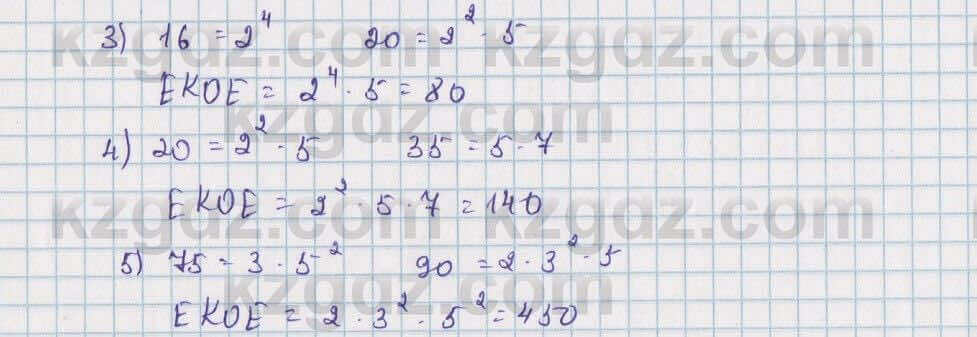 3) 16 = 2⁴ 20 = 2² · 5
ЕКОЕ = 2⁴ · 5 = 80
4) 20 = 2² · 5 35 = 5 · 7
ЕКОЕ = 2² · 5 · 7 = 140
5) 75 = 3 · 5² 90 = 2 · 3² · 5
ЕКОЕ = 2 · 3² · 5² = 450
kzgdz.com kzgdz.com
kzgdz.com
kzgdz.com kzgdz.com
kzgdz.com